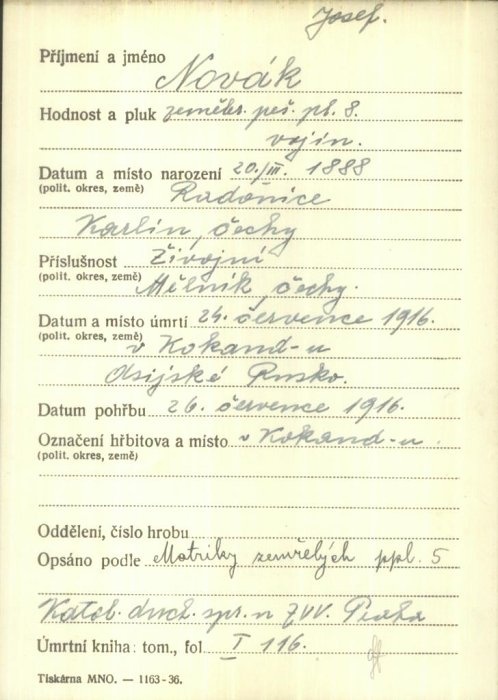 Josef.
Příjmení a jméno
Novák
Hodnost a pluk zeměbr. peš. pl. 8.
vojín.
Datum a místo narození 20./III. 1888
(polit. okres, země) Radonice
Karlín, čechy
Příslušnost Živojní
(polit. okres, země) Mělník, čechy.
Datum a místo úmrtí 24. července 1916.
(polit. okres, země) v Kokand-u
Asijské Rusko.
Datum pohřbu 26. července 1916.
Označení hřbitova a místo v Kokand-u.
(polit. okres, země)
Oddělení, číslo hrobu
Opsáno podle Matriky zemřelých ppl. 5
Katol. duch. spr. u ZVV. Praha
Úmrtní kniha: tom., fol I 116.
Tiskárna MNO. — 1163-36.